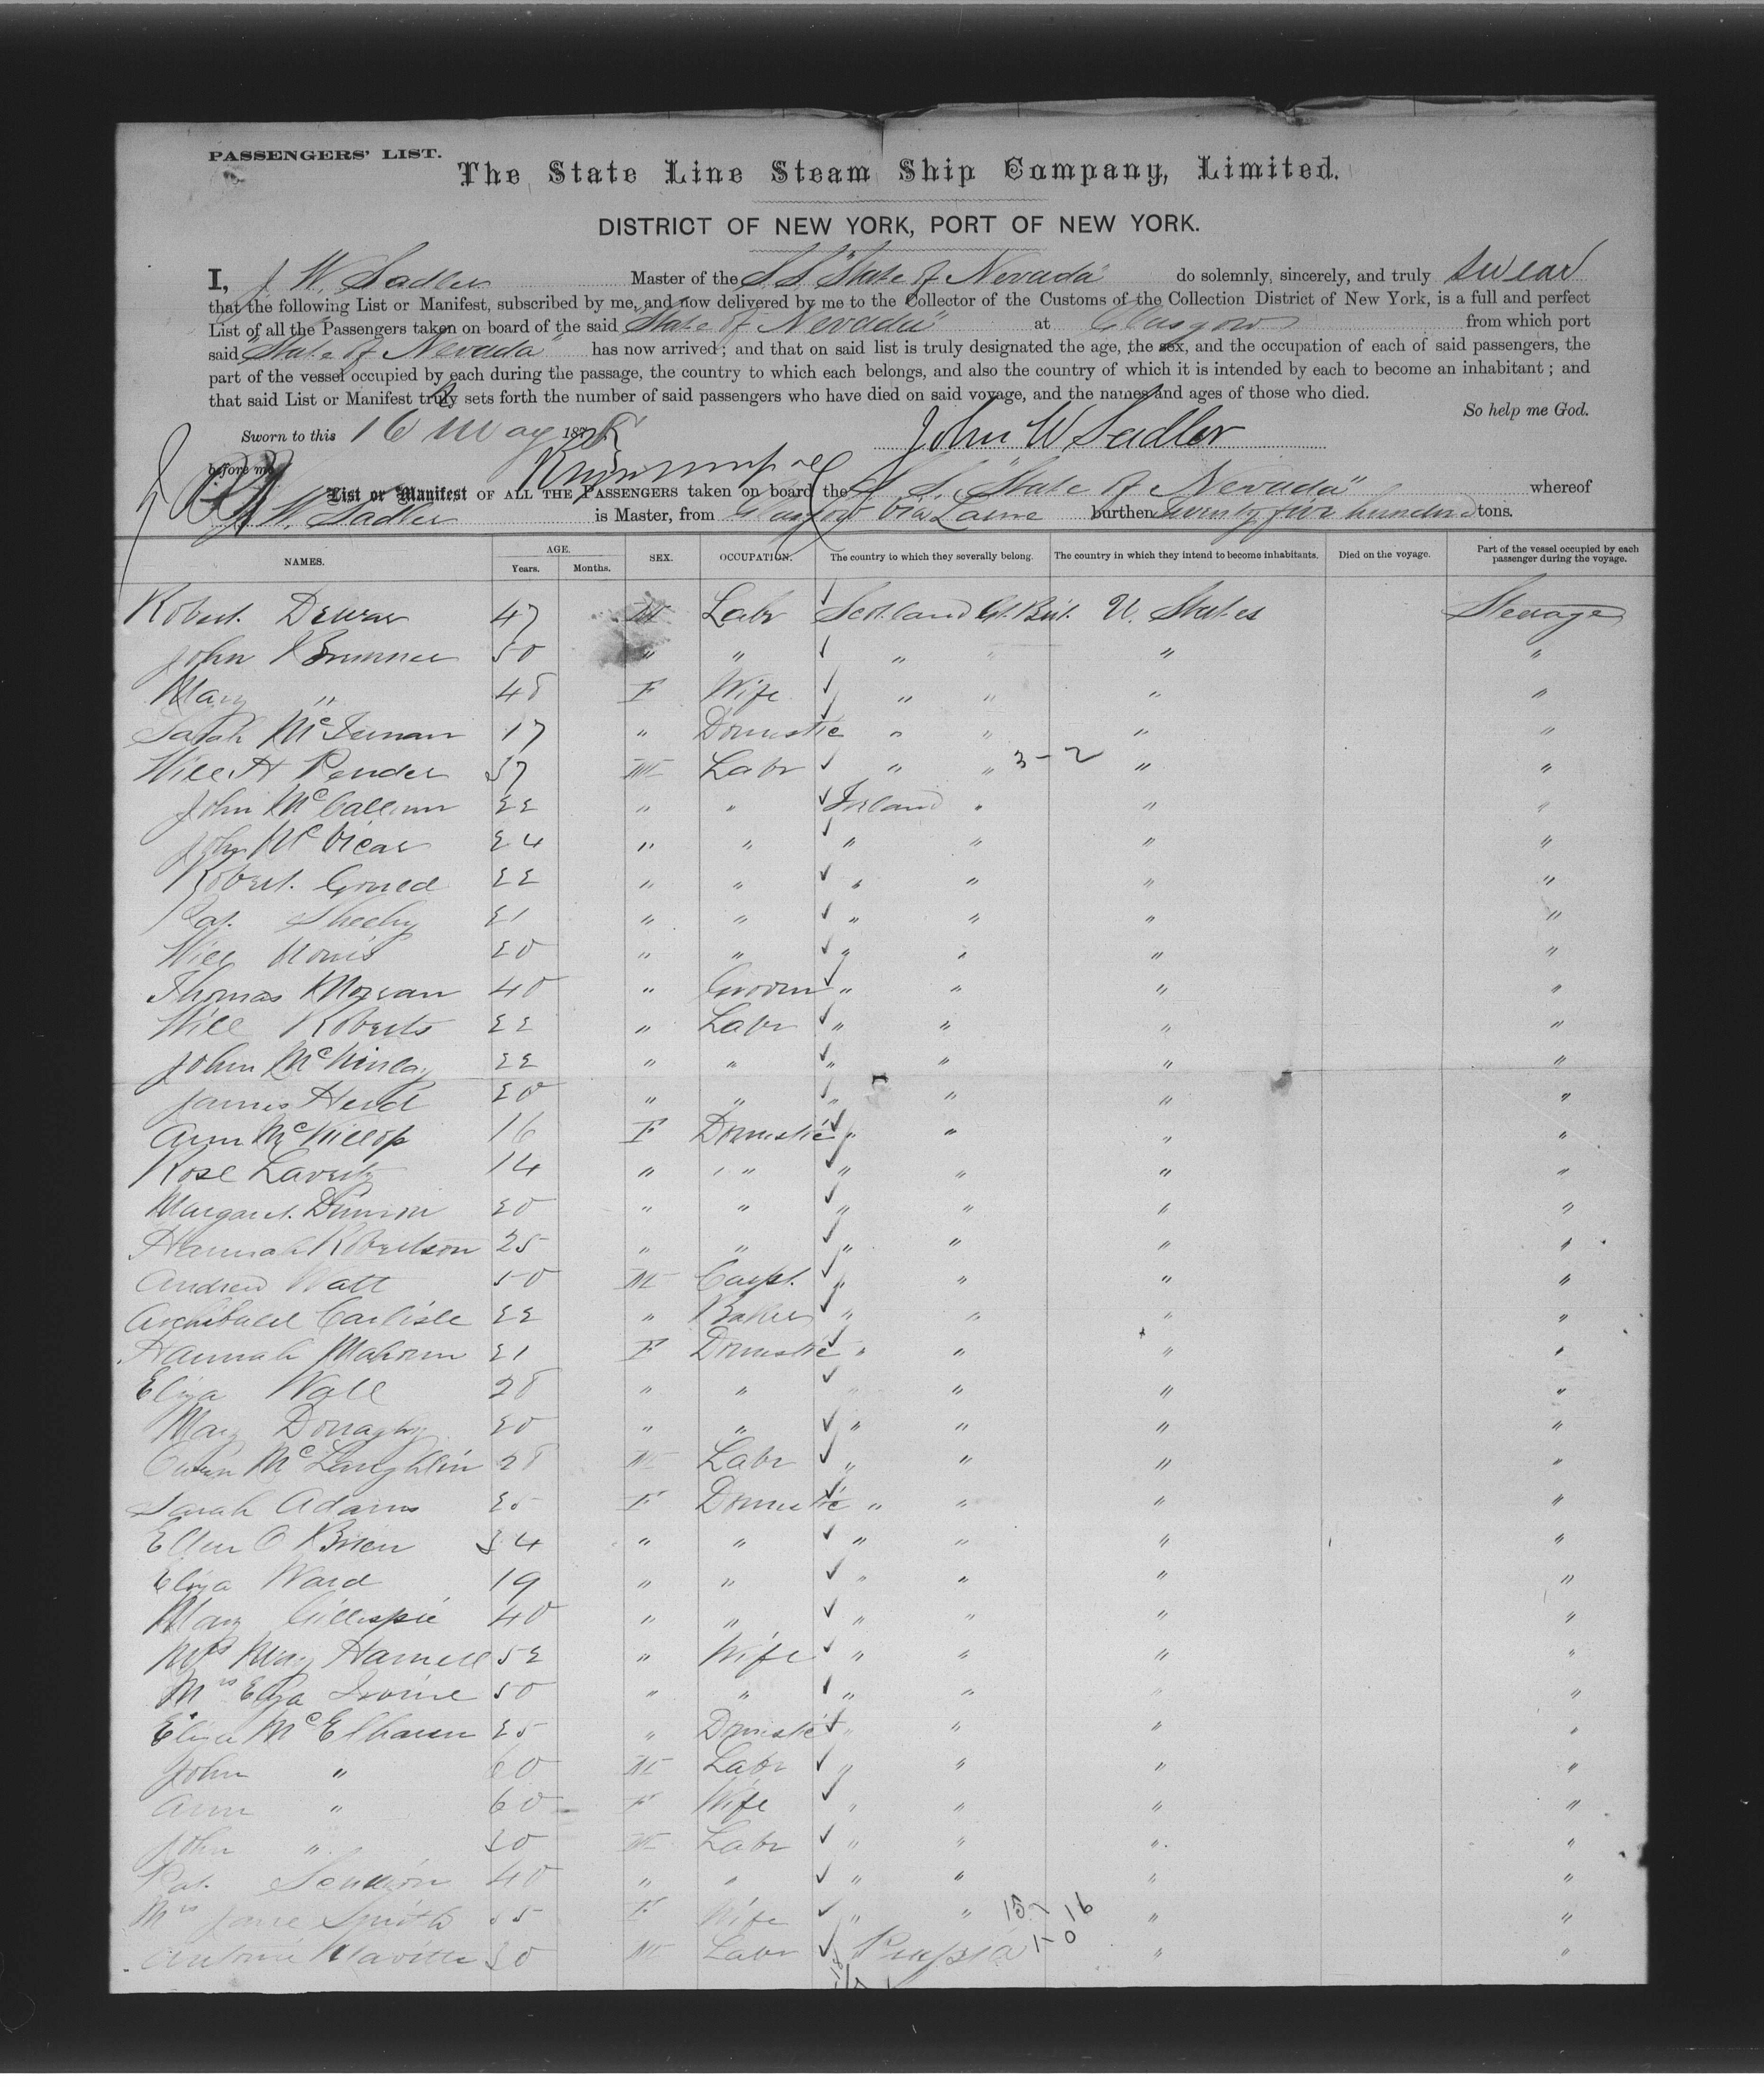 PASSENGERS' LIST.
The State Line Steam Ship Company, Limited.
DISTRICT OF NEW YORK, PORT OF NEW YORK.
I, J W. Sadler Master of the S.S. "State of Nevada" do solemnly, sincerely, and truly swear
that the following List or Manifest, subscribed by me, and now delivered by me to the Collector of the Customs of the Collection District of New York, is a full and perfect
List of all the Passengers taken on board of the said "State of Nevada" at Glasgow from which port
said "State of Nevada" has now arrived; and that on said list is truly designated the age, the sex, and the occupation of each of said passengers, the
part of the vessel occupied by each during the passage, the country to which each belongs, and also the country of which it is intended by each to become an inhabitant; and
that said List or Manifest truly sets forth the number of said passengers who have died on said voyage, and the names and ages of those who died.
So help me God.
Sworn to this 16 May 187 John W Sadler
before me
List or Manifest OF ALL THE PASSENGERS taken on board the S.S. "State of Nevada" whereof
J W. Sadler is Master, from Glasgow via Larne burthen Twenty five hundred tons.
NAMES. AGE. Years. Months. SEX. OCCUPATION. The country to which they severally belong. The country in which they intend to become inhabitants. Died on the voyage. Part of the vessel occupied by each passenger during the voyage.
Robert 47 M Labr Scotland Gt. Brit. U. States Steerage
John 50 " " " " " "
Mary " 48 F Wife " " " "
Sarah 17 " Domestic " " " "
Will H Pender 57 M Labr " " 3-2 " "
John McCallum 22 " " Ireland " " "
John McVicar 24 " " " " " "
Robert. 22 " " " " " "
Pat. Sheehy 21 " " " " " "
Will 20 " " " " " "
Thomas Morgan 40 " Groom " " " "
Will Roberts 22 " Labr " " " "
John McKinlay 22 " " " " " "
James Herd 20 " " " " " "
Ann McKillop 16 F Domestic " " " "
Rose Laverty 14 " " " " " "
Margaret. 20 " " " " " "
Hannah Robertson 25 " " " " " "
Andrew Watt 50 M Carpt. " " " "
Archibald Carlisle 22 " Baker " " " "
Hannah 21 F Domestic " " " "
Eliza Wall 28 " " " " " "
Mary Donaghy 20 " " " " " "
Owen McLaughlin 28 M Labr " " " "
Sarah Adams 25 F Domestic " " " "
Ellen O Brien 34 " " " " " "
Eliza Ward 19 " " " " " "
Mary Gillespie 40 " " " " " "
Mrs Mary 52 " Wife " " " "
Mrs Eliza Irvine 50 " " " " " "
Eliza 25 " Domestic " " " "
John " 60 M Labr " " " "
Ann " 60 F Wife " " " "
John " 30 M Labr " " " "
Pat. 40 " " " " " "
Mrs Jane Smith 55 F Wife " " 15 16 " "
30 M Labr 1-0 " "